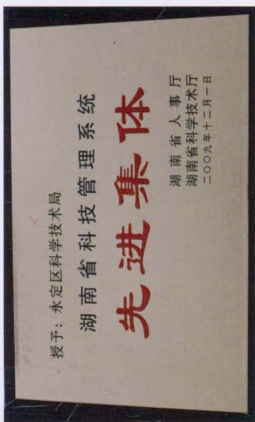 授予：永定区科学技术局
湖南省科技管理系统
先进集体
湖南省人事厅
湖南省科学技术厅
二〇〇九年十二月一日